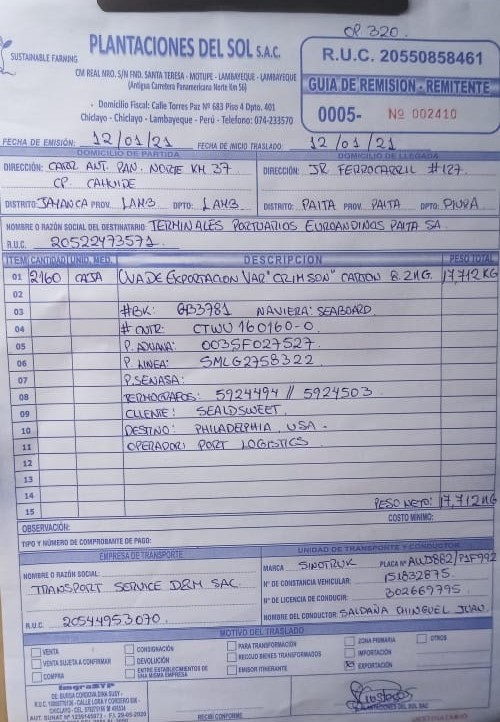 OP 320.
SUSTAINABLE FARMING
PLANTACIONES DEL SOL S.A.C.
CM REAL NRO. S/N FND. SANTA TERESA - MOTUPE - LAMBAYEQUE - LAMBAYEQUE
(Antigua Carretera Panamericana Norte Km 56)
• Domicilio Fiscal: Calle Torres Paz Nº 683 Piso 4 Dpto. 401
Chiclayo - Chiclayo - Lambayeque - Perú - Telefono: 074-233570
R.U.C. 20550858461
GUIA DE REMISION - REMITENTE
0005- Nº 002410
FECHA DE EMISIÓN: 12/01/21 FECHA DE INICIO TRASLADO: 12/01/21
DOMICILIO DE PARTIDA DOMICILIO DE LLEGADA
DIRECCIÓN: CARR. ANT. PAN. NORTE KM 37 DIRECCIÓN: JR FERROCARRIL #127.
CP. CAHUIDE
DISTRITO: JAYANCA PROV. LAMB DPTO: LAMB. DISTRITO: PAITA PROV. PAITA DPTO: PIURA
NOMBRE O RAZÓN SOCIAL DEL DESTINATARIO: TERMINALES PORTUARIOS EUROANDINOS PAITA SA
R.U.C. 20522473571.
ITEM CANTIDAD UNID. MED. DESCRIPCION PESO TOTAL
01 2160 CAJA UVA DE EXPORTACION VAR "CRIMSON" CARTON 8.2KG. 17,712KG
02
03 #BK: GB3781 NAVIERA: SEABOARD
04 # CNTR: CTWU 160160-0.
05 P. ADUANA: 003SF027527.
06 P. LINEA: SMLG2758322.
07 P. SENASA:
08 TERMOGRAFOS: 5924494 // 5924503.
09 CLIENTE: SEALDSWEET.
10 DESTINO: PHILADELPHIA, USA.
11 OPERADOR: PORT LOGISTICS
12
13
14
15 PESO NETO: 17,712 KG
OBSERVACIÓN: COSTO MÍNIMO:
TIPO Y NÚMERO DE COMPROBANTE DE PAGO:
EMPRESA DE TRANSPORTE UNIDAD DE TRANSPORTE Y CONDUCTOR
MARCA SINOTRUK PLACA Nº AWD882/P1F992
NOMBRE O RAZÓN SOCIAL Nº DE CONSTANCIA VEHICULAR: 151832875.
TRANSPORT SERVICE D&M SAC. Nº DE LICENCIA DE CONDUCIR: 302669795.
R.U.C. 20544953070. NOMBRE DEL CONDUCTOR: SALDAÑA CHINGUEL JUAN.
MOTIVO DEL TRASLADO
VENTA CONSIGNACIÓN PARA TRANSFORMACIÓN ZONA PRIMARIA OTROS
VENTA SUJETA A CONFIRMAR DEVOLUCIÓN RECOJO BIENES TRANSFORMADOS IMPORTACIÓN
COMPRA ENTRE ESTABLECIMIENTOS DE UNA MISMA EMPRESA EMISOR ITINERANTE EXPORTACIÓN
PLANTACIONES DEL SOL SAC
RECIBÍ CONFORME